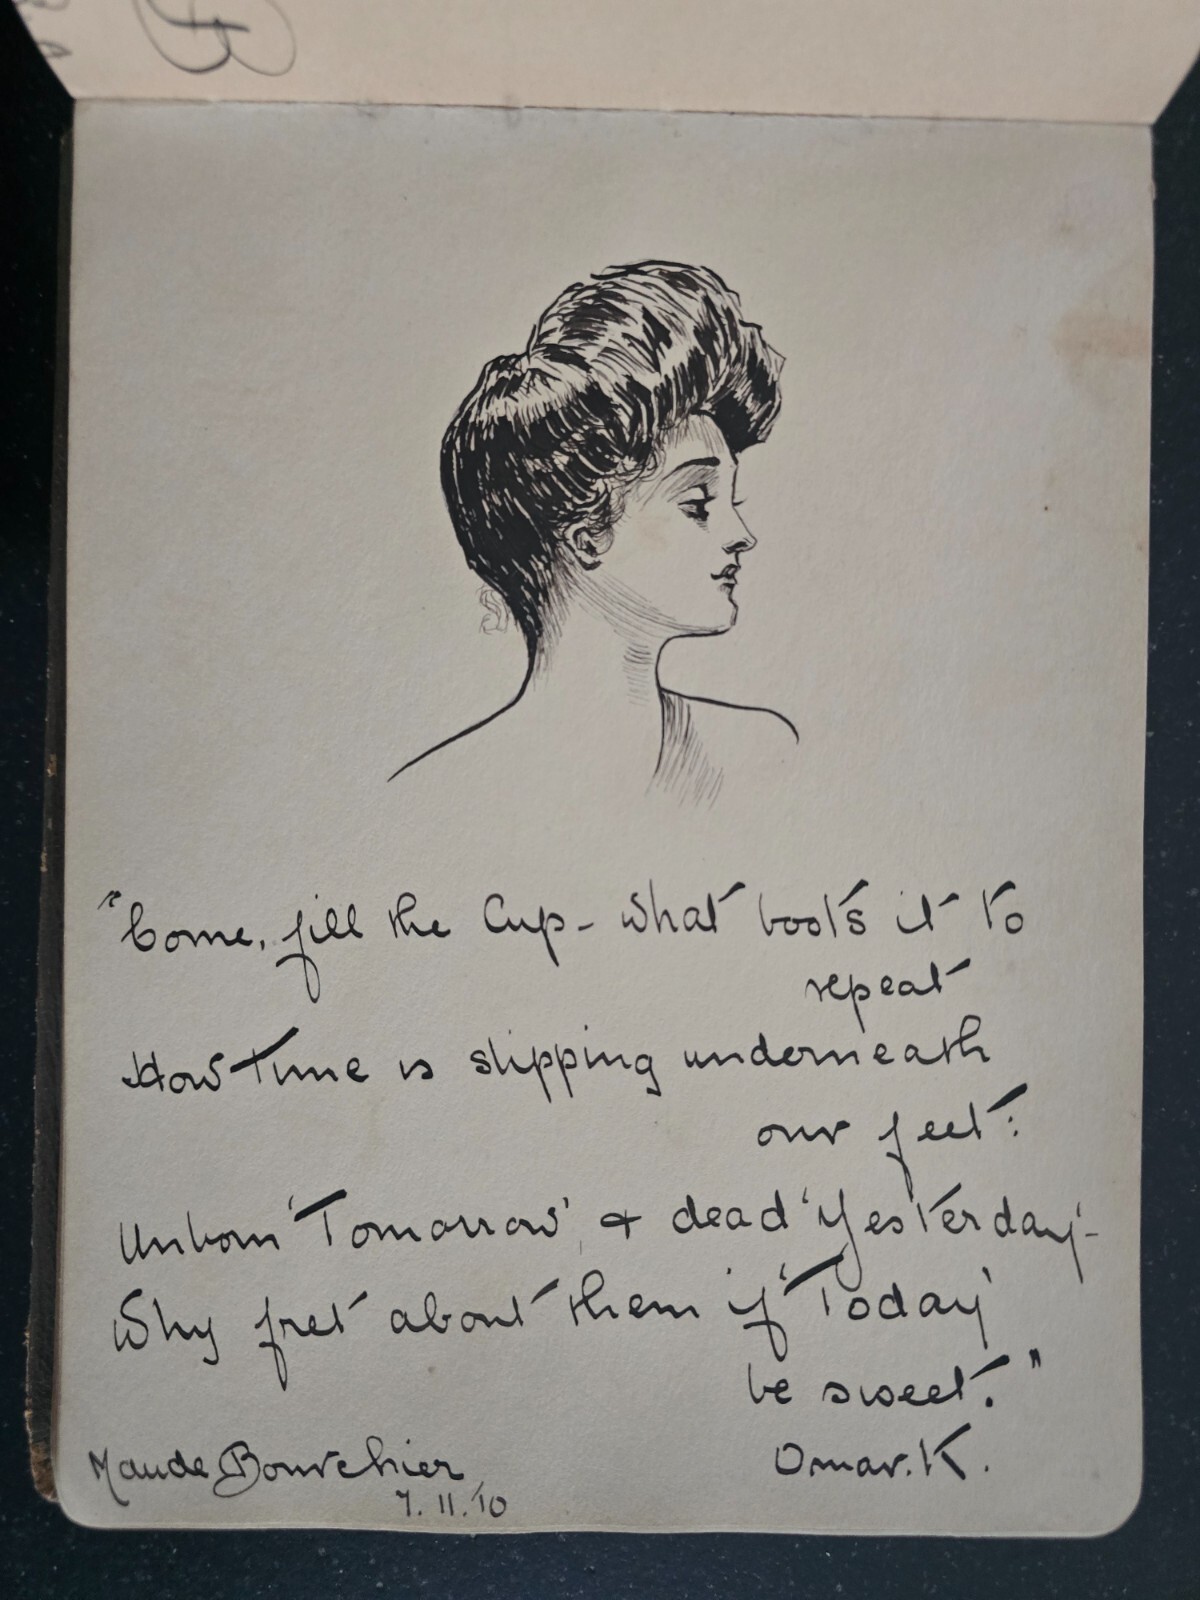 "Come, fill the Cup - what boots it to
repeat
How Time is slipping underneath
our feet:
Unborn 'Tomorrow', & dead 'Yesterday' -
Why fret about them if 'Today'
be sweet."
Omar. K.
Maude Bourchier
7. 11. '10